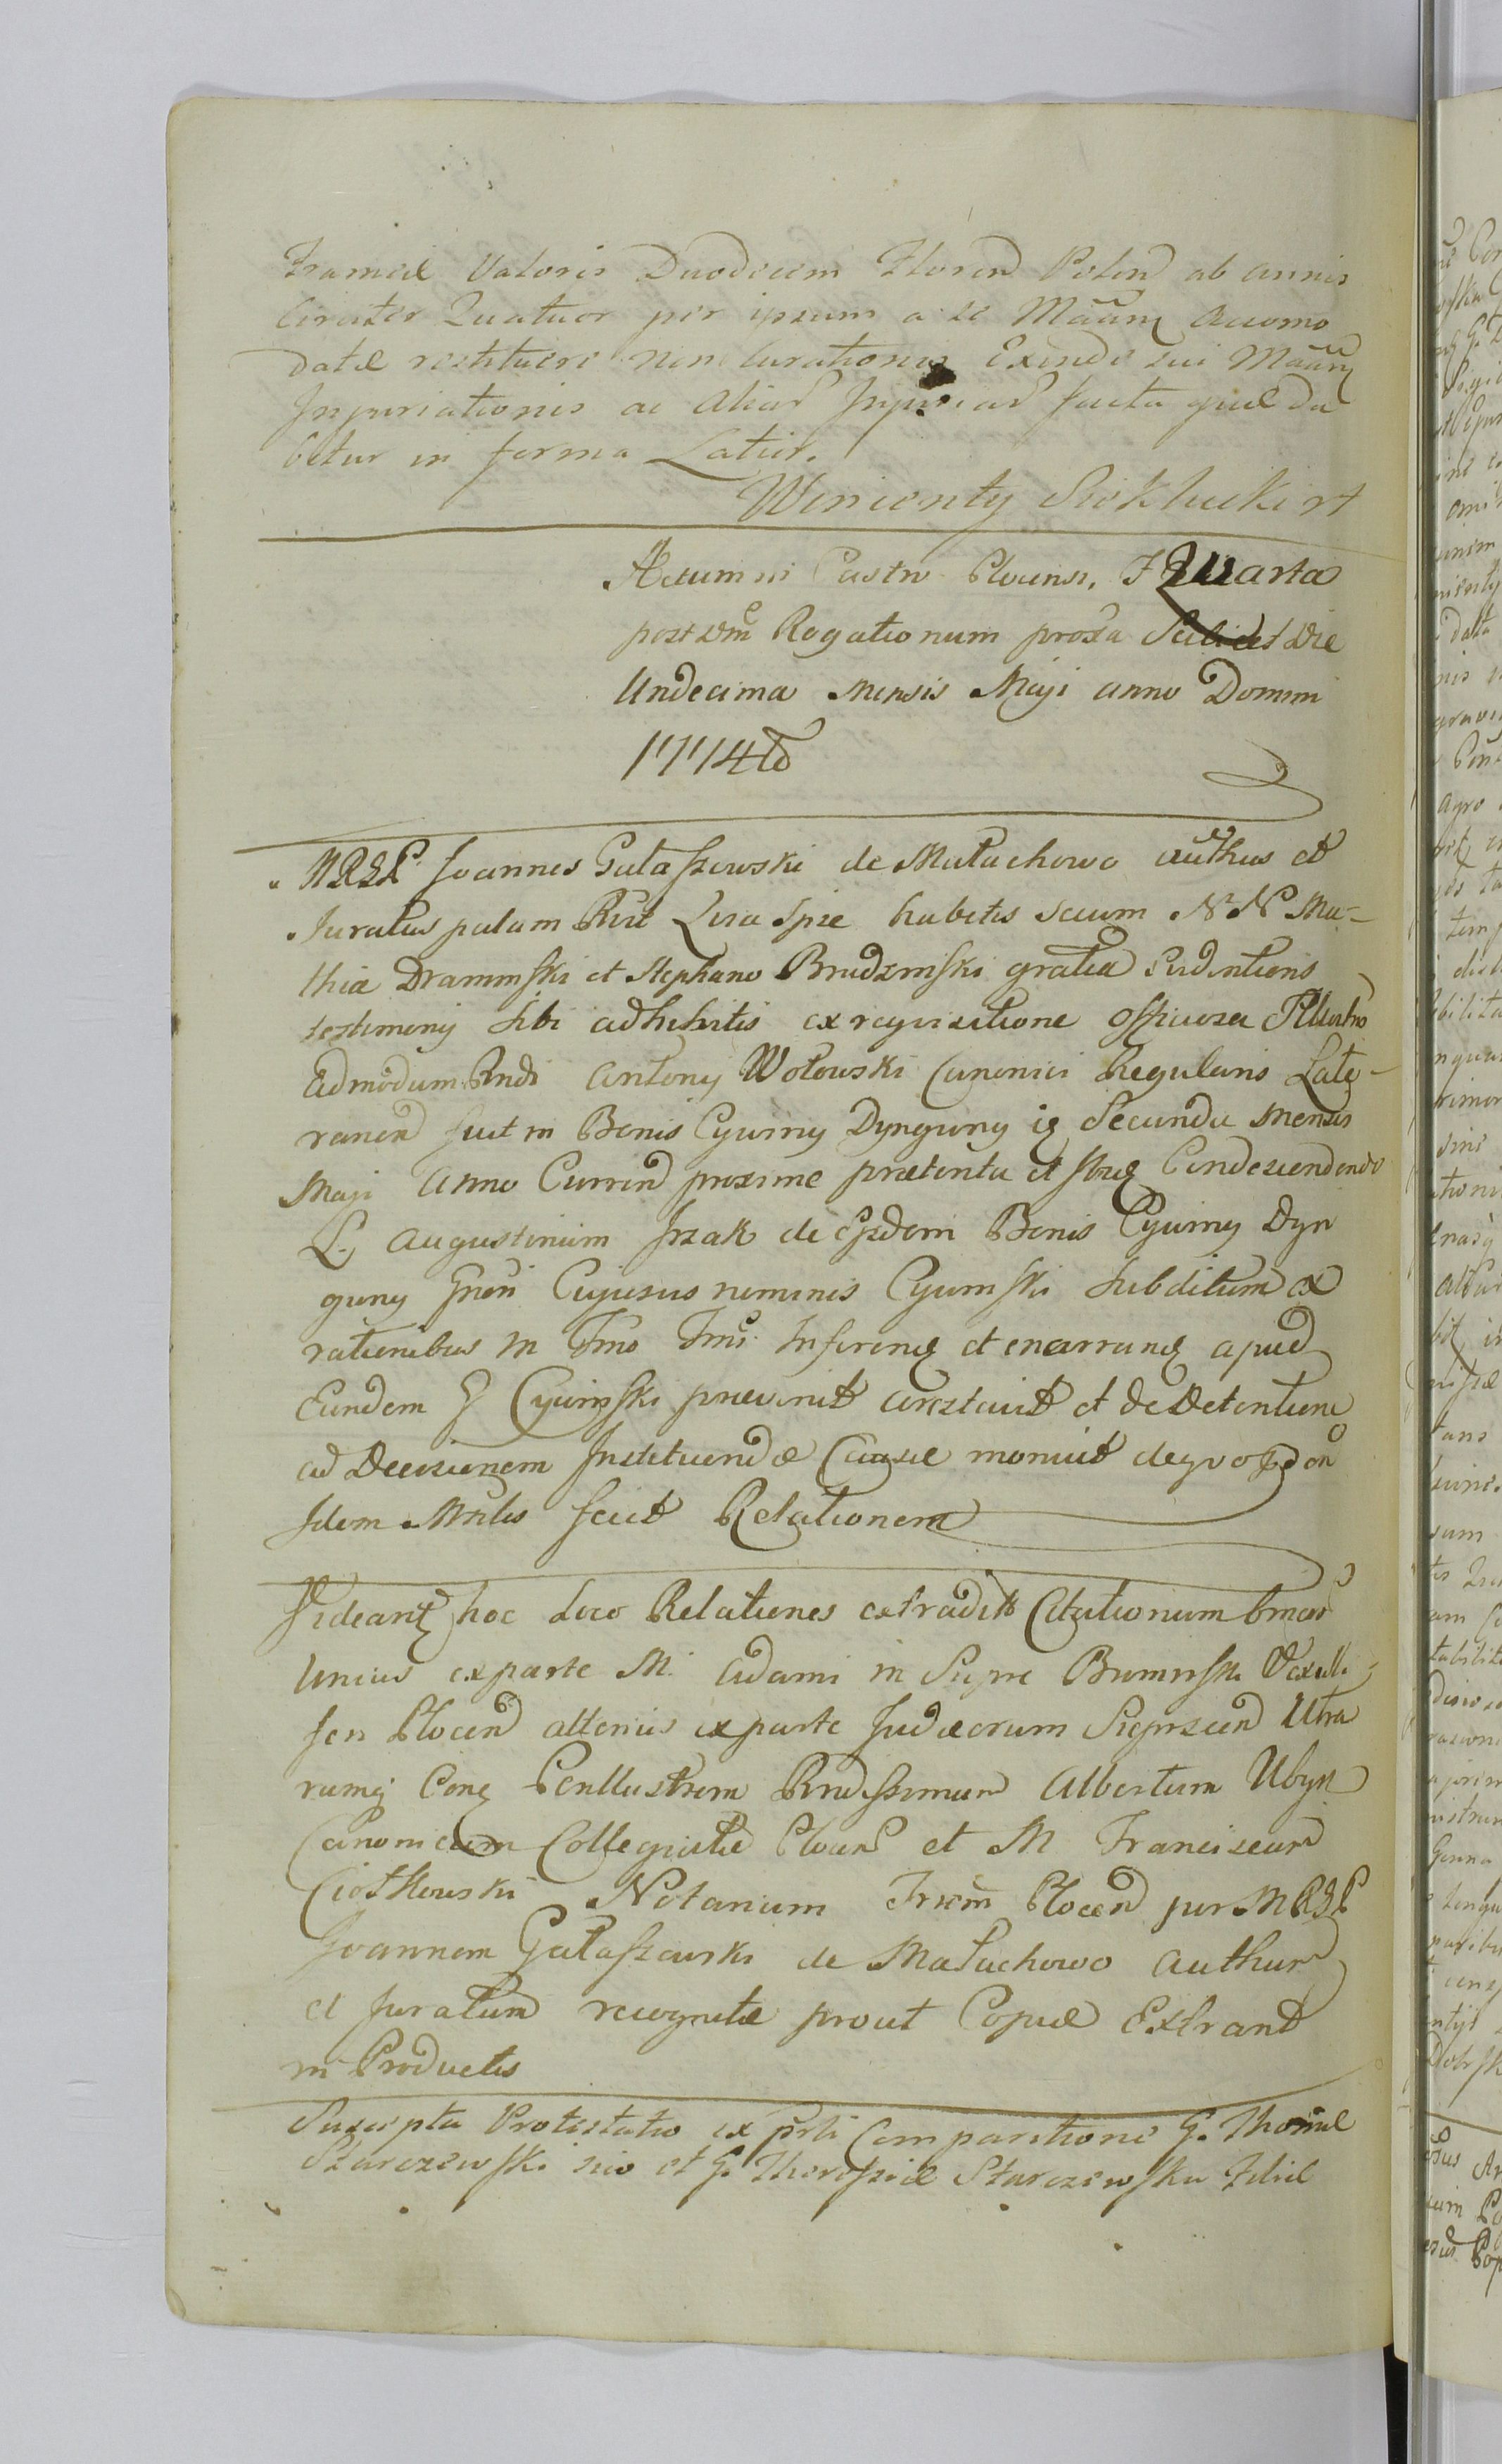 Frameae Valoris Duodecim Floren Polon ab annis
Circiter Quatuor per ipsum a se Maãnq Accomo
datae restituere non Curationis Exinde sui Maãnq
Injuriationis ac Aliar Injuriar facta quae da
betur in forma Latior.
Wincenty Siokluckirt
Actum in Castro Plocensi, F Quarta
post Dm̃ Rogationum proxã Scilicet Die
Undecima Mensis Maji anno Domini
1774to
MRGL Joannes Gałaszewski de Małachowo authus et
Juratus palam Rĩt Lera Spie habitis secum NN Ma-
thia Draminski et Stephano Brudzinski gratia
testimony sibi adhibitis ex requisitione officiosa Illustris
Admodum Rndi Antony Wołowski Canonici Regularis Late-
ranen fuit in Bonis Cyuiny Dynguny ie Secunda Mensis
Maji Anno Curren proxime praeterita et Condescendendo
L. Augustinum Jrzak de ejsdem Bonis Cyuiny Dyn
guny Gnõsi Cujusvis nominis Cyuinski Subditum ex
rationibus in Fno Fmi Inferenq et enarranq apud
Eundem G Cyuinski praevenit arestavit et de Detentione
ad Decisionem Instituendae Causae monuit de quo
Idem Mntlis fecit Relationem
Videantq hoc Loco Relationes extradit Citationum binar
Unius ex parte M. Adami in Sierpc Vexilli-
feri Plocen alterius ex parte Judaeorum Sieprscen Utra
rumq Conq Perillustrem Rndissimum Albertum Ubysz
Canonicum Collegiatae Plocen et M Franciscum
Ciołkowski Notarium Plocen per MRGL
Joannem Gałaszewski de Małachowo Authum
et Juratum recognitae prout Copiae Extrant
in Productis
Suscepta Protestatio ex prti Comparitione G. Thomae
Starczewski suo et G. Theresiae Starczewska Filiae